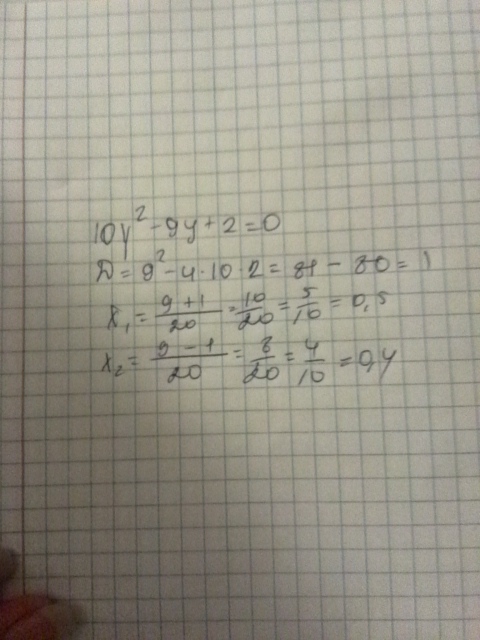 10y² - 9y + 2 = 0
D = 9² - 4 · 10 · 2 = 81 - 80 = 1
x₁ = (9 + 1)/20 = 10/20 = 5/10 = 0,5
x₂ = (9 - 1)/20 = 8/20 = 4/10 = 0,4